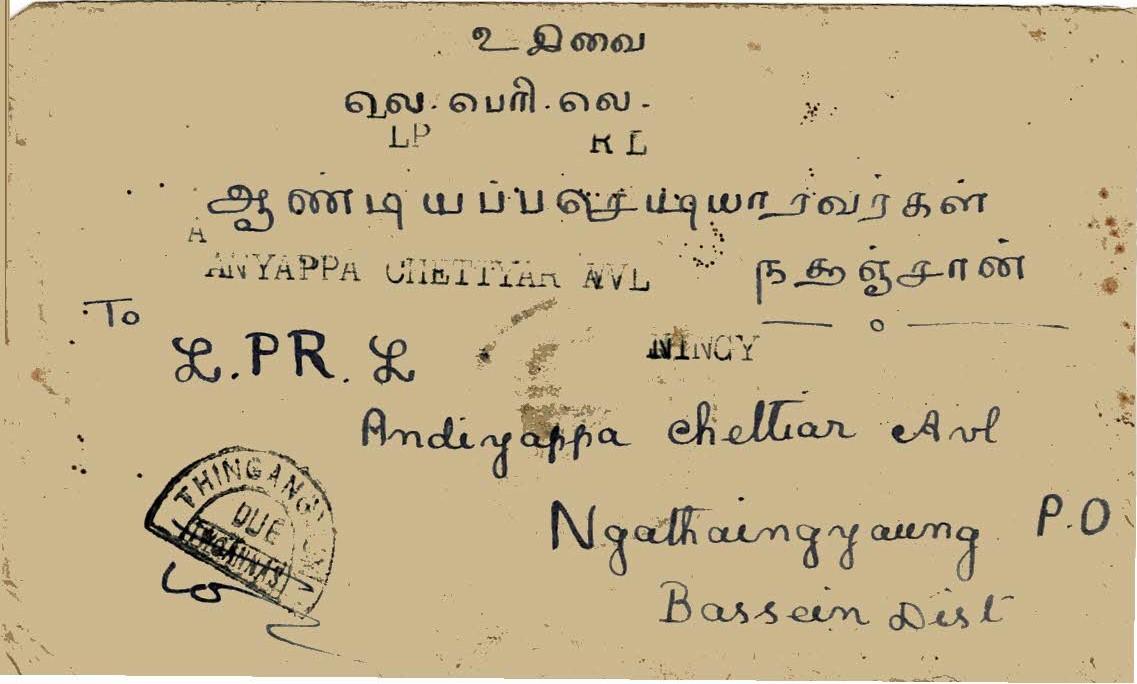 உ இவை
லெ. பெரி. லெ.
LP R L
ஆண்டியப்பசெட்டியாரவர்கள்
A
ANYAPPA CHETTYAR AVL
To
L. PR. L
NINGY
Andiyappa Chettiar Avl
THINGANGYUN
DUE
Ngathaingyaung P.O
Bassein Dist